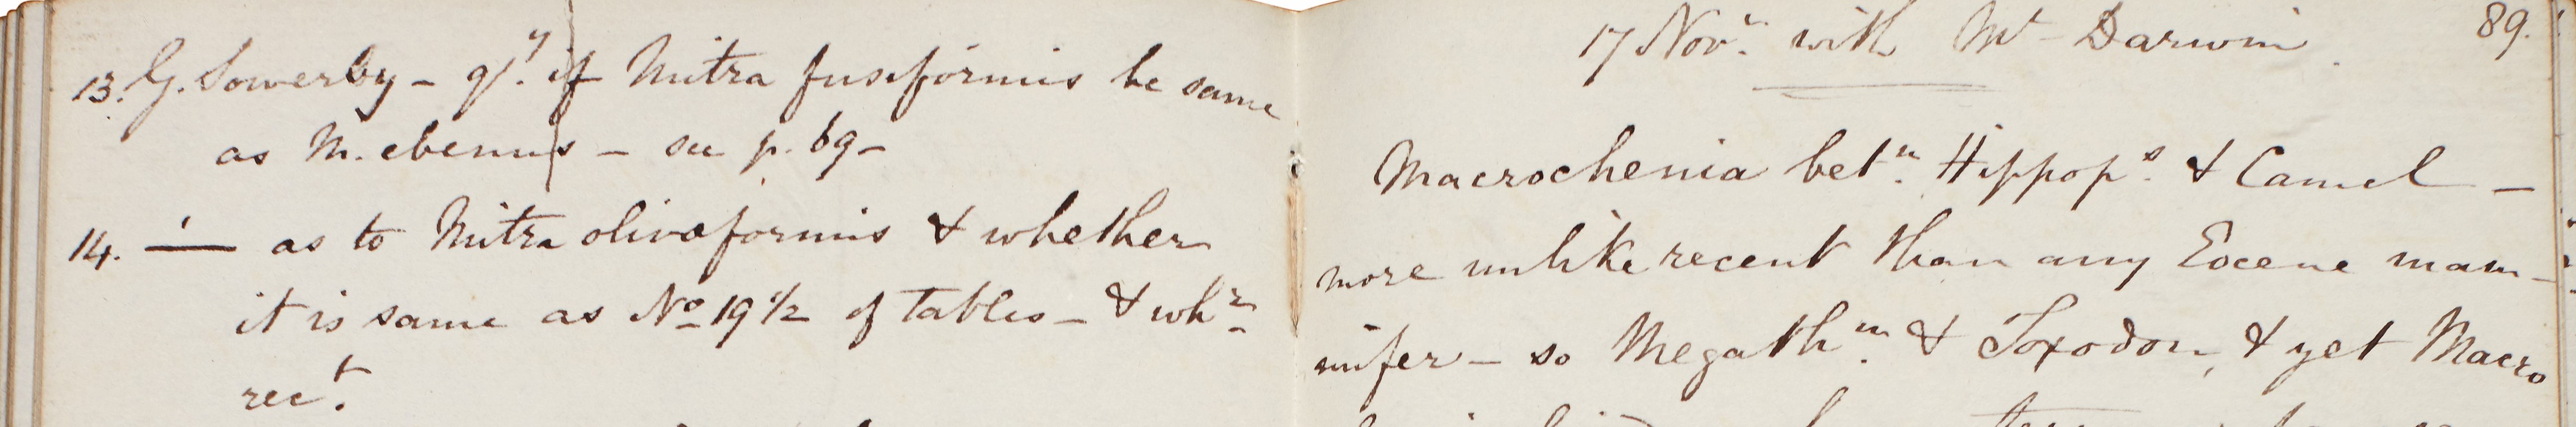 13. G. Sowerby - qy. if Mitra fusiformis be same
as M. ebenus - see p. 69-
14. — as to Mitra olivæformis & whether
it is same as No 19 1/2 of Tables - & whr.
rect.
17 Novr. with Mr Darwin.
89.
Macrochenia betn. Hippops. & Camel -
more unlike recent than any Eocene mam-
mifer - so Megathm. & Toxodon, & yet Macro